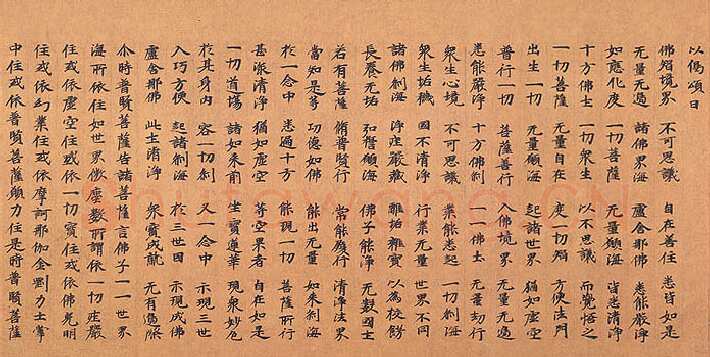 以偈頌曰
佛境界 不可思議 自在善住 悉皆如是
无量无邊 諸佛界海 盧舍那佛 悉能嚴淨
如應化度 一切菩薩 无量願海 皆悉清淨
十方佛土 一切衆生 以不思議 而覺悟之
一切菩薩 无量自在 變一切 方便法門
出生一切 无量願海 起諸世界 猶如虛空
普行一切 菩薩善行 入佛境界 无量无邊
悉能嚴淨 十方佛刹 一一佛土 无量劫行
衆生心境 不可思議 業能悉起 一切刹海
衆生垢穢 國不清淨 行業无量 世界不同
諸佛刹海 淨莊嚴藏 離垢雜寶 以為校飾
長養无垢 弘誓願海 佛子能淨 无數國土
若有菩薩 脩普賢行 常能履行 清淨法界
當知是等 功德如佛 能出无量 如來刹海
於一念中 悉過十方 能現一切 菩薩所行
甚深清淨 猶如虛空 等空界者 自在如是
一切道場 諸如來前 坐寶蓮華 現衆妙色
於其身內 容一切刹 又一念中 示現三世
入巧方便 起諸刹海 於三世因 示現成佛
盧舍那佛 此土清淨 衆寶成就 无有
尒時普賢菩薩告諸菩薩言佛子一一世界
海所依住如世界微塵數所謂依一切莊嚴
住或依虛空住或依一切寶住或依佛光明
住或依幻業住或依摩訶那伽金剛力士掌
中住或依普賢菩薩願力住是時普賢菩薩